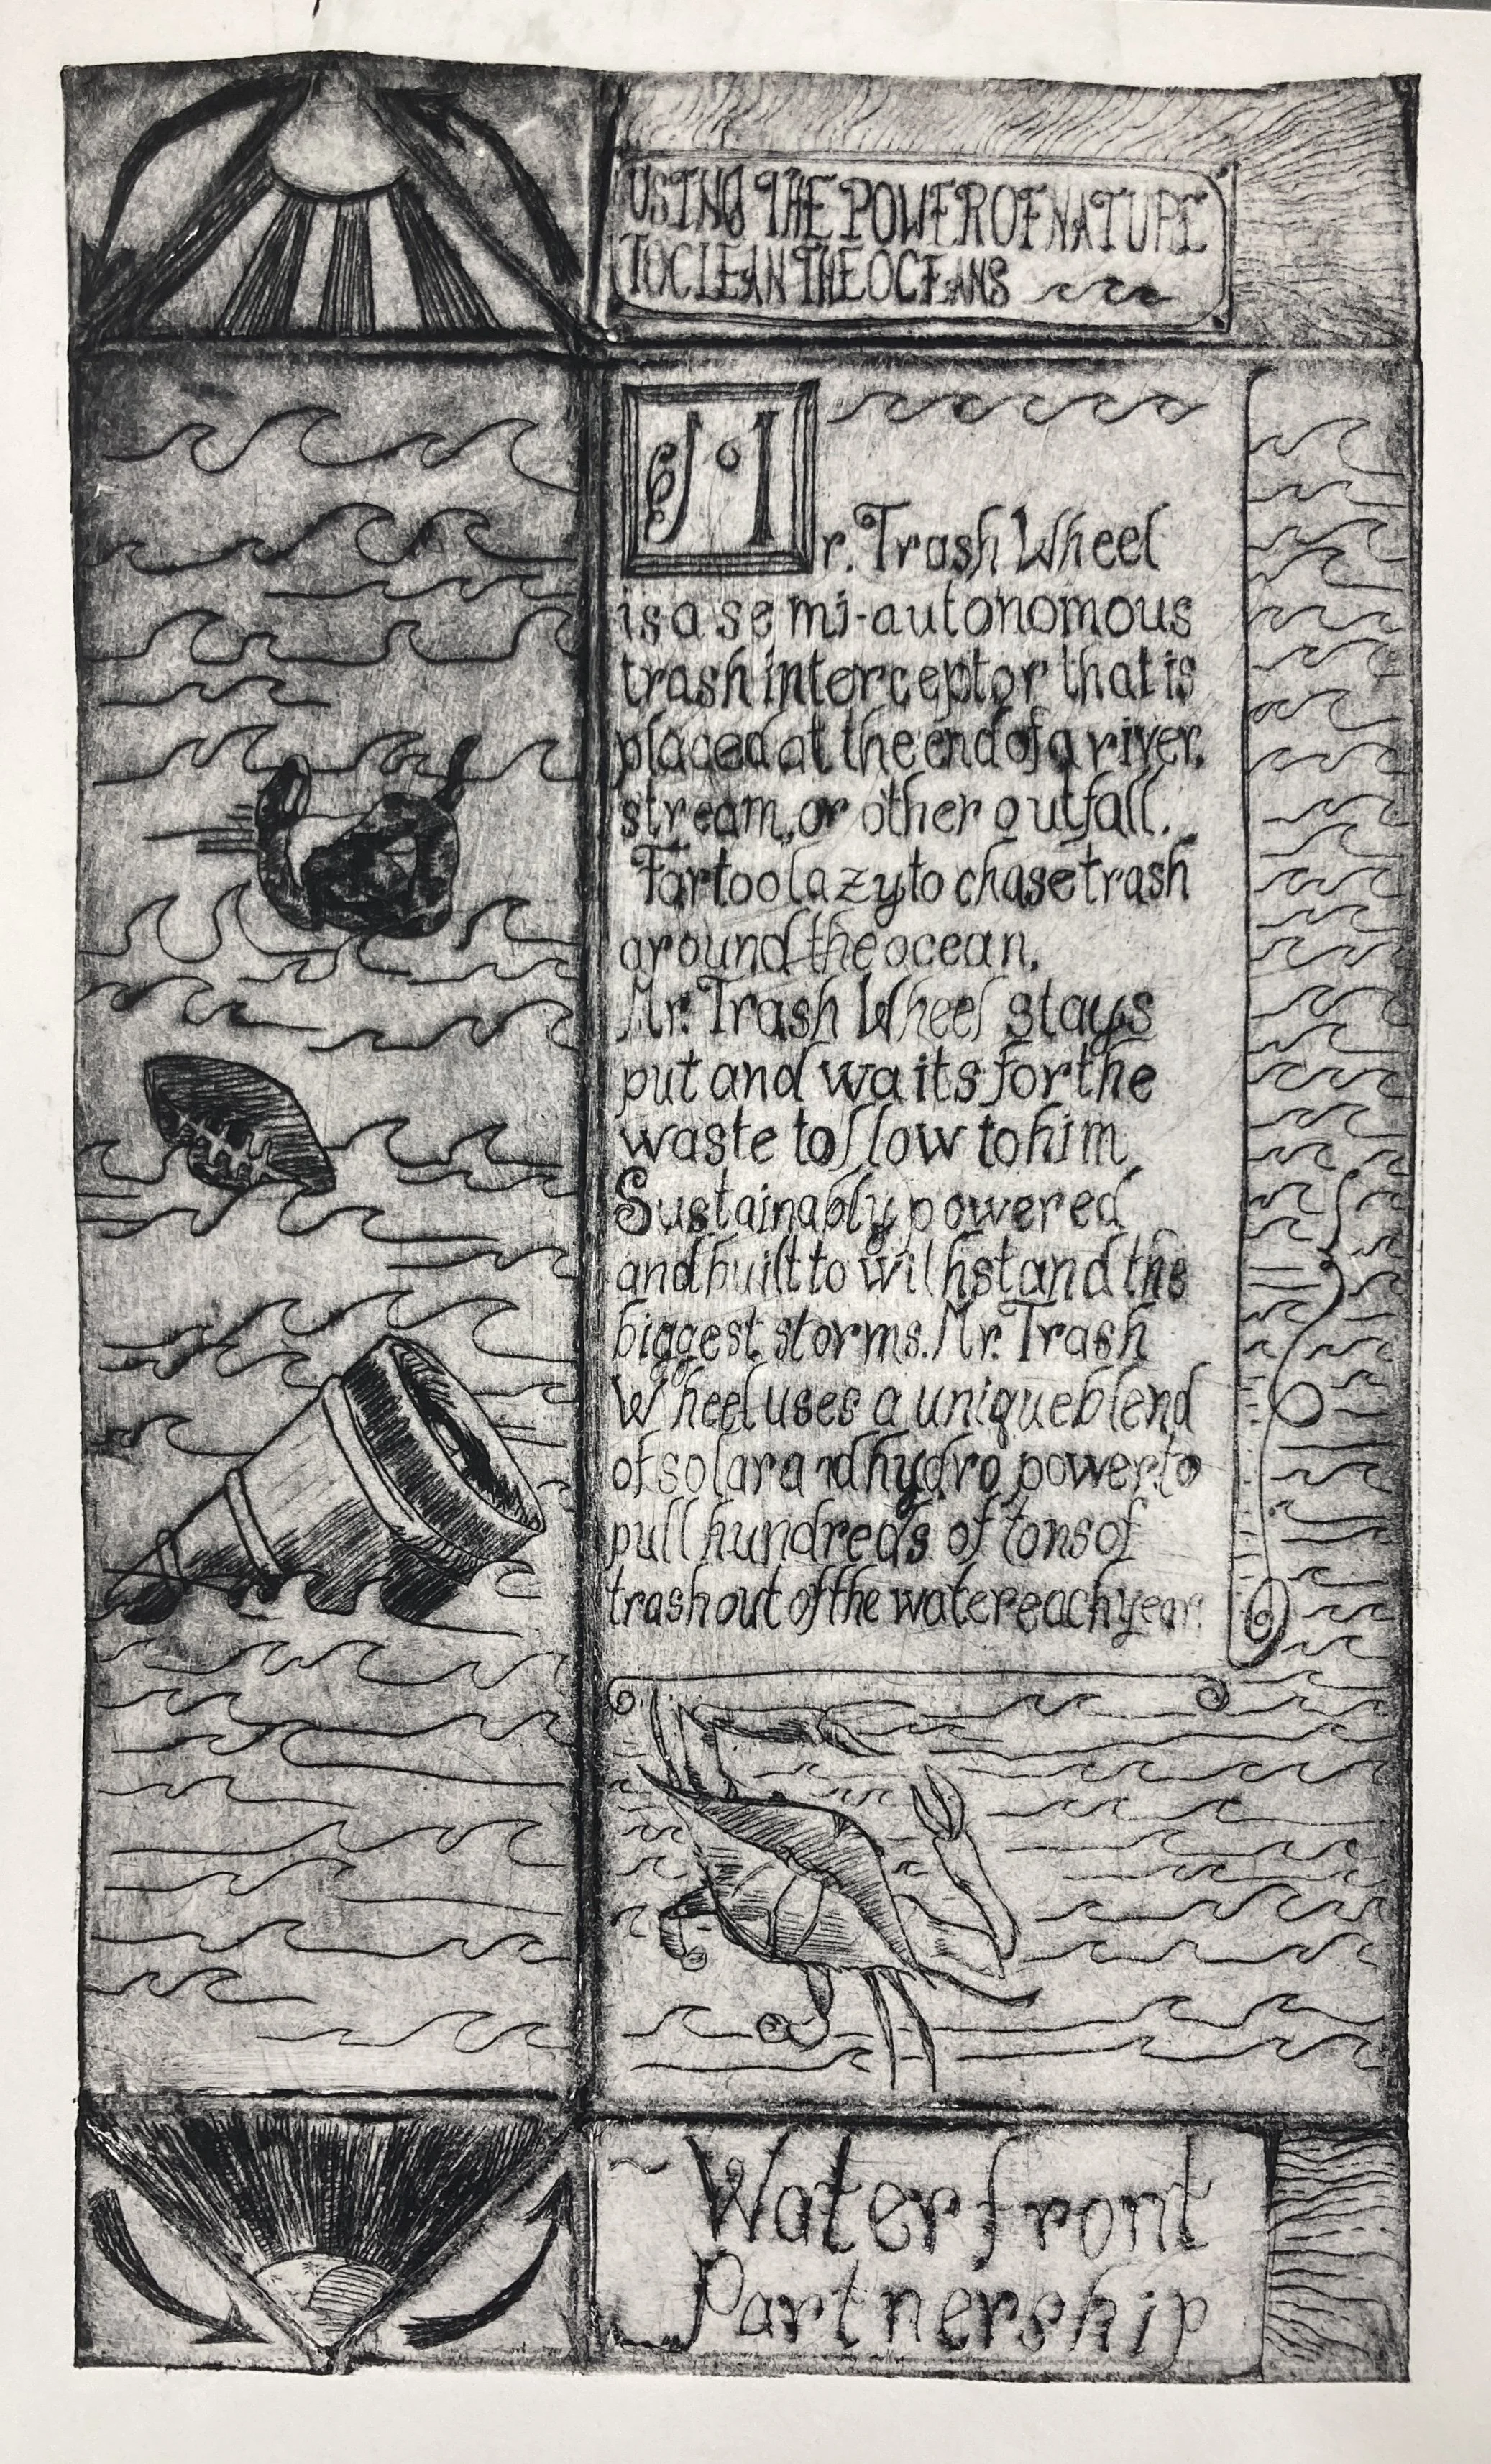 USING THE POWER OF NATURE
TO CLEAN THE OCEANS
Mr. Trash Wheel
is a semi-autonomous
trash interceptor that is
placed at the end of a river,
stream, or other outfall.
Far too lazy to chase trash
around the ocean,
Mr. Trash Wheel stays
put and waits for the
waste to flow to him.
Sustainably powered
and built to withstand the
biggest storms. Mr. Trash
Wheel uses a unique blend
of solar and hydro power to
pull hundreds of tons of
trash out of the water each year.
Waterfront
Partnership